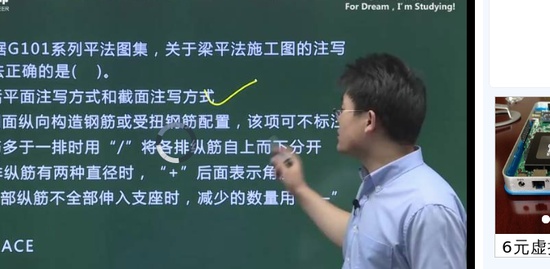 For Dream, I'm Studying!
据G101系列平法图集，关于梁平法施工图的注写
法正确的是（　）。
平面注写方式和截面注写方式
面纵向构造钢筋或受扭钢筋配置，该项可不标注
多于一排时用“/”将各排纵筋自上而下分开
纵筋有两种直径时，“+”后面表示角
部纵筋不全部伸入支座时，减少的数量用
ACE
6元虚